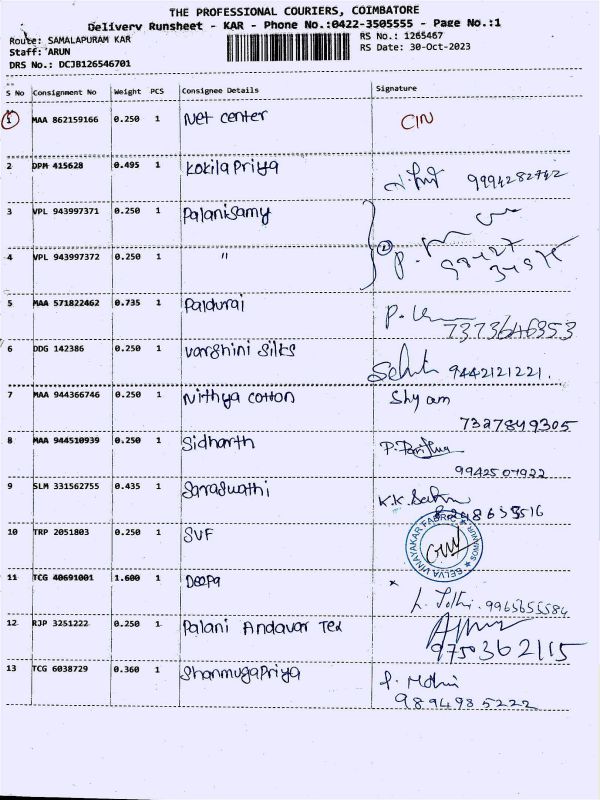 THE PROFESSIONAL COURIERS, COIMBATORE
Delivery Runsheet - KAR - Phone No.:0422-3505555 - Page No.:1
Route: SAMALAPURAM KAR
RS No.: 1265467
Staff: ARUN
RS Date: 30-Oct-2023
DRS No.: DCJB126546701
S No Consignment No Weight PCS Consignee Details Signature
1 MAA 862159166 0.250 1 Net center CIN
2 DPM 415628 0.495 1 Kokila Priya 9994282442
3 VPL 943997371 0.250 1 Palanisamy
4 VPL 943997372 0.250 1 "
5 MAA 571822462 0.735 1 Paldurai
7373646353
6 DDG 142386 0.250 1 varshini Silks 9442121221.
7 MAA 944366746 0.250 1 Nithya cotton Shyam
7327849305
8 MAA 944510939 0.250 1 Sidharth
9942507922
9 SLM 331562755 0.435 1 Saraswathi K.K.
10 TRP 2051803 0.250 1 SVF
SELVA VINAYAKAR FABRIC
11 TCG 40691001 1.600 1 Deepa
9965655584
12 RJP 3251222 0.250 1 Palani Andavar Tex
9750362115
13 TCG 6038729 0.360 1 Shanmugapriya
9894985222